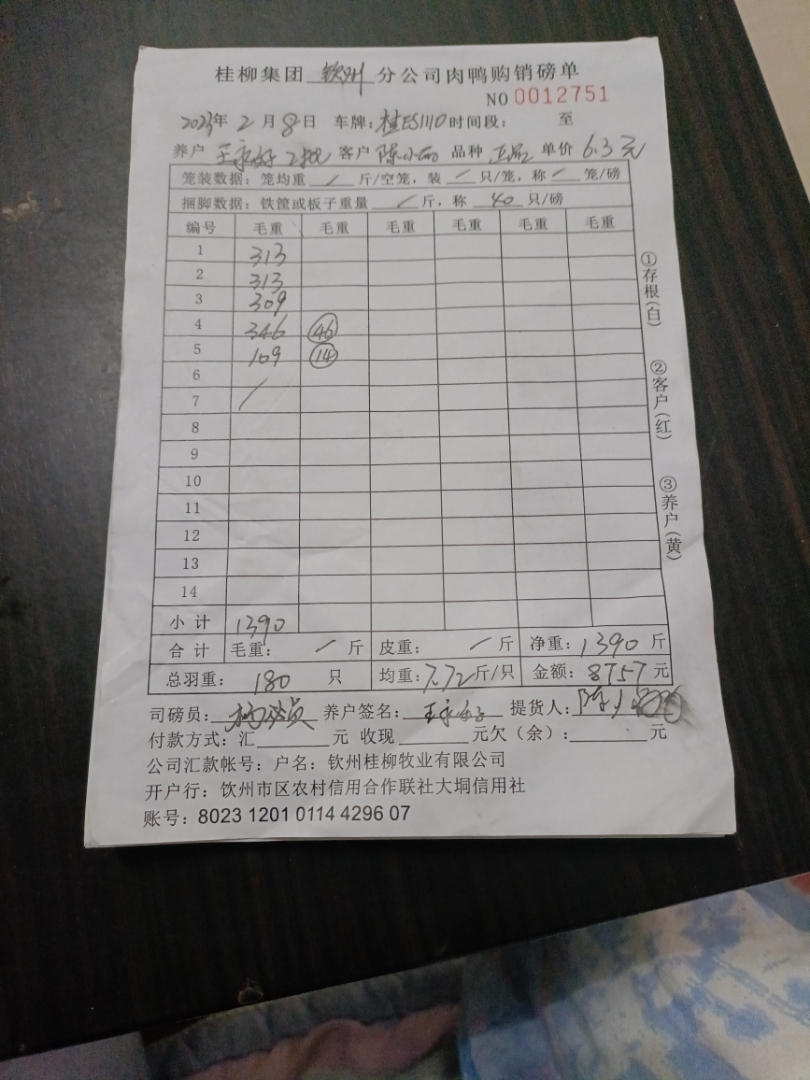 桂柳集团 钦州 分公司肉鸭购销磅单
NO 0012751
2023年 2 月 8 日 车牌：桂ES1110 时间段： 至
养户 王永好 2批 客户 品种 正品 单价 6.3元
笼装数据：笼均重 / 斤/空笼，装 / 只/笼，称 / 笼/磅
捆脚数据：铁筐或板子重量 / 斤，称 40 只/磅
编号 毛重 毛重 毛重 毛重 毛重 毛重
1 313
2 313
3 309
4 346 46
5 109 14
6
7 /
8
9
10
11
12
13
14
小计 1390
合计 毛重： / 斤 皮重： / 斤 净重：1390 斤
总羽重： 180 只 均重：7.72斤/只 金额：8757元
司磅员： 养户签名：王永好 提货人：
付款方式：汇 元 收现 元欠（余）： 元
公司汇款帐号：户名：钦州桂柳牧业有限公司
开户行：钦州市区农村信用合作联社大垌信用社
账号：8023 1201 0114 4296 07
①存根(白)
②客户(红)
③养户(黄)